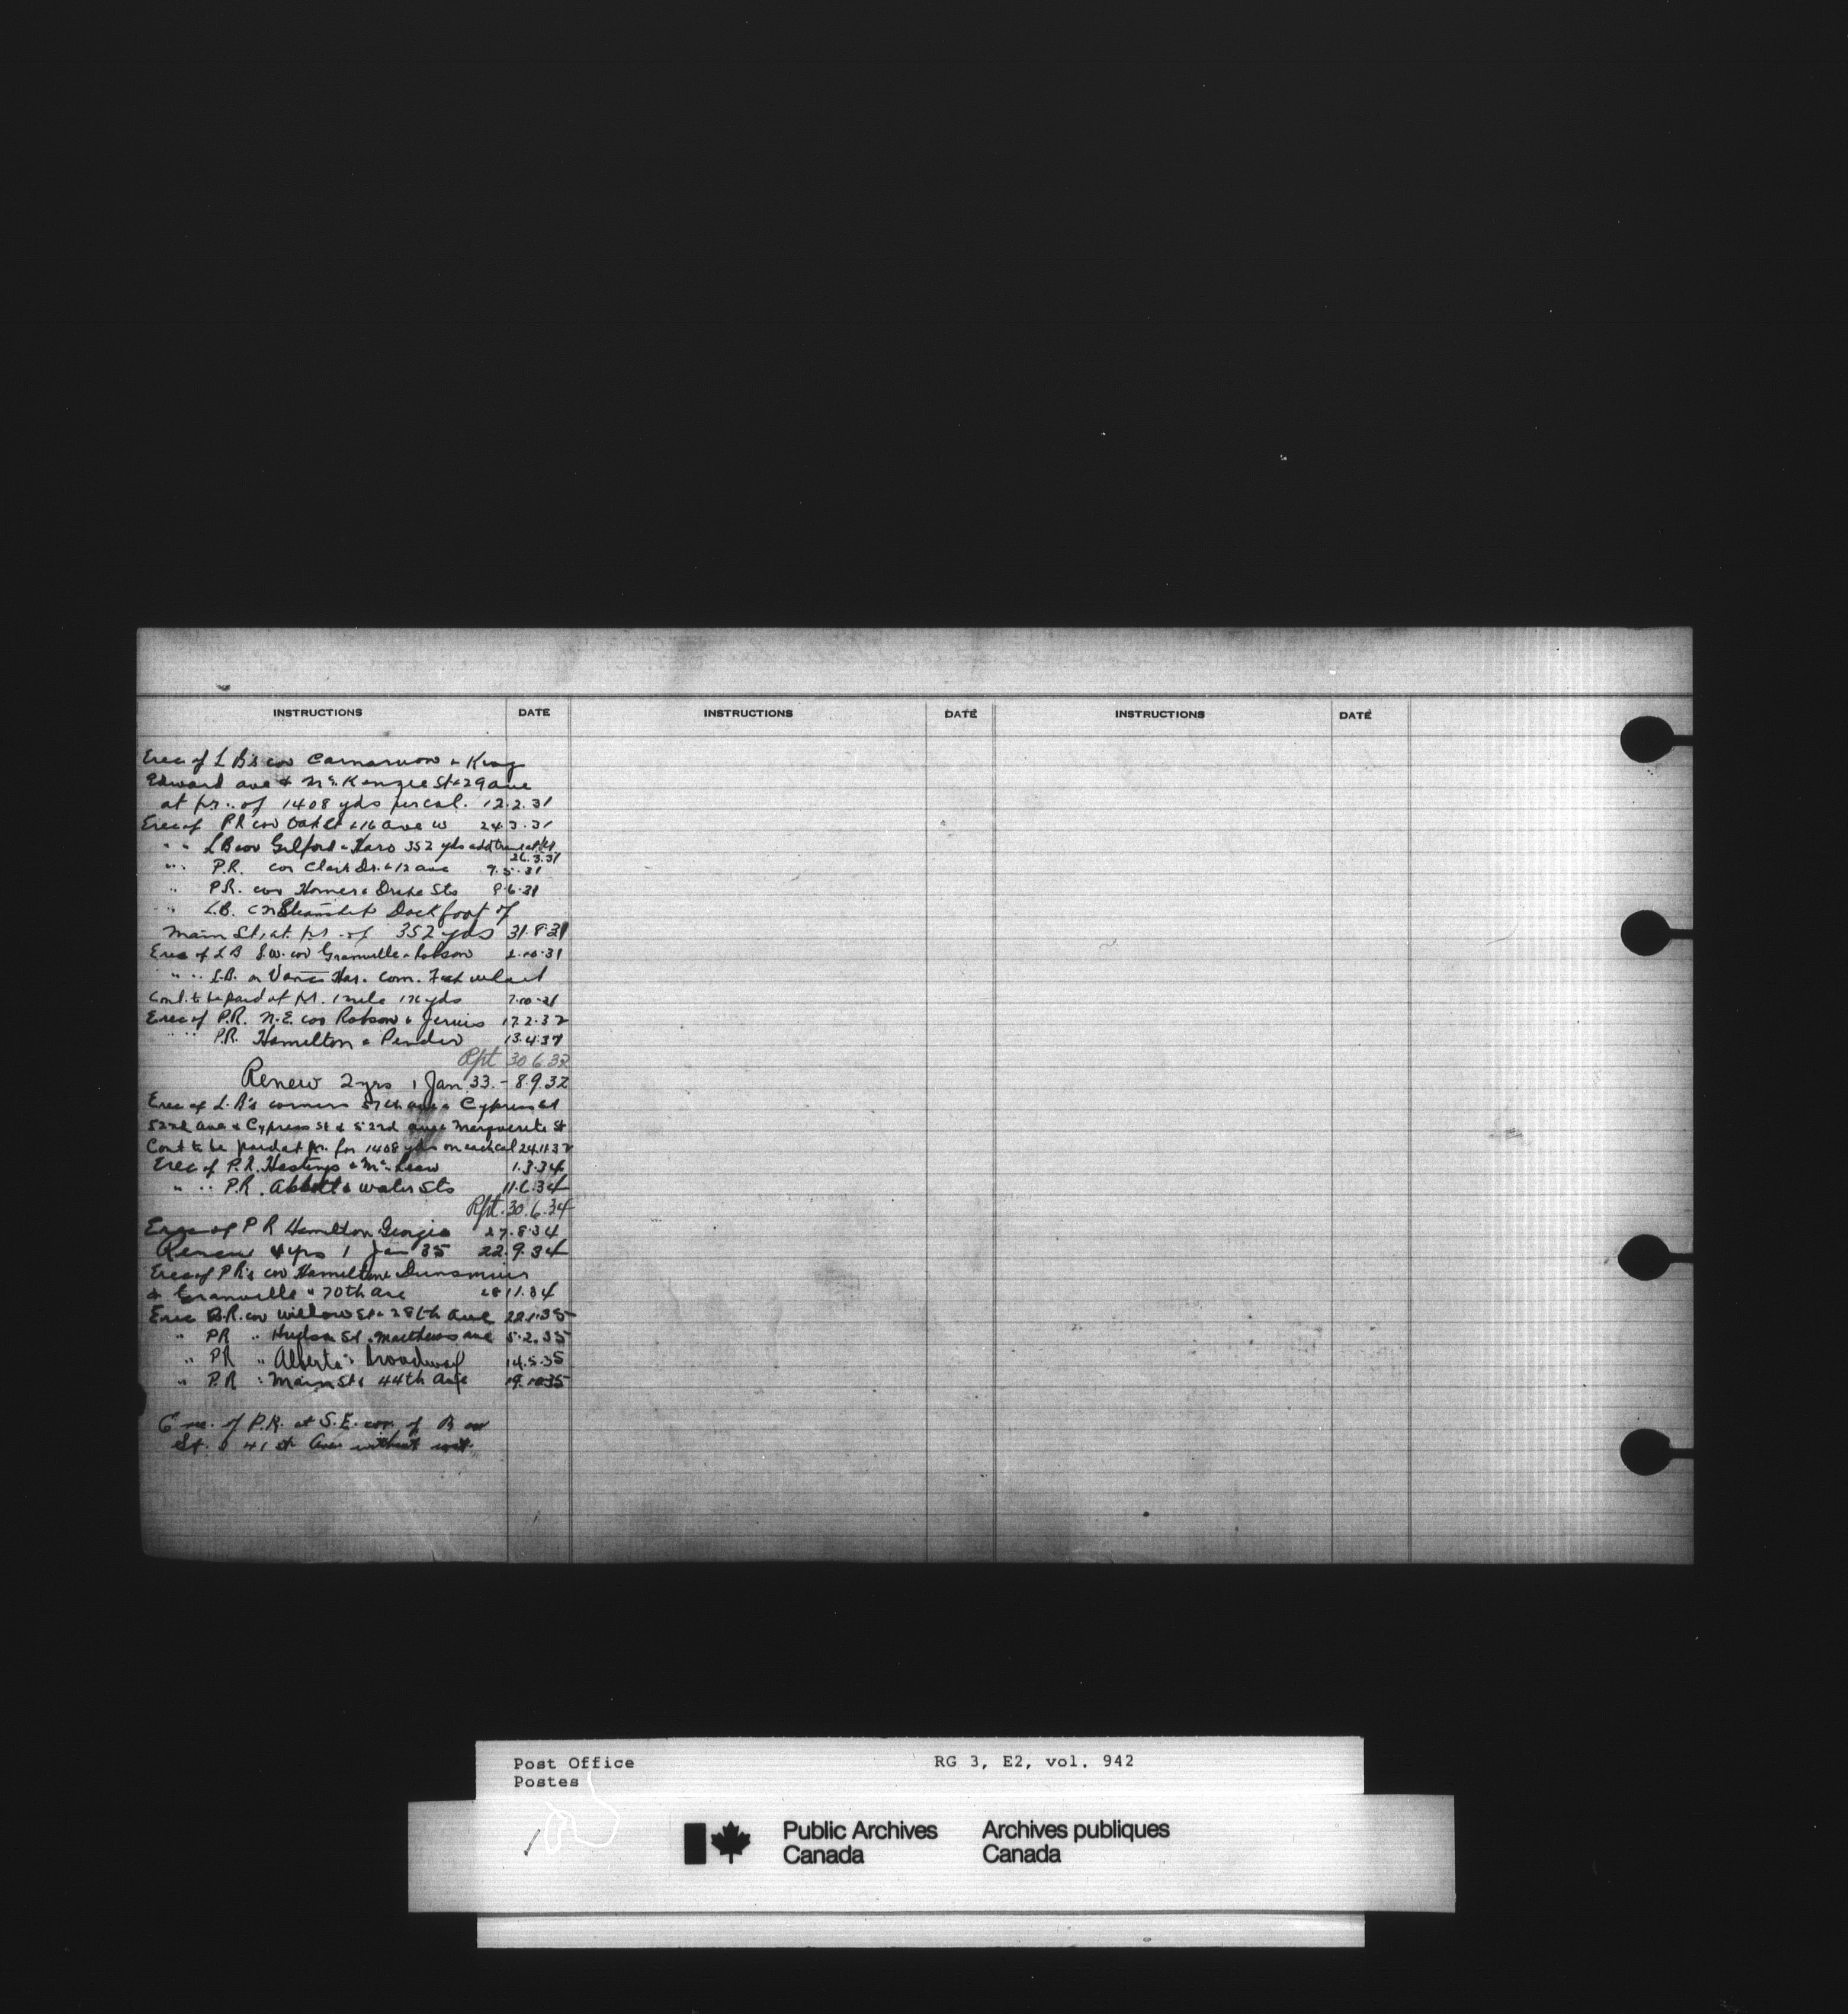 INSTRUCTIONS DATE INSTRUCTIONS DATE INSTRUCTIONS DATE
Erec of L B's cor Carnarvon & King
Edward ave & McKenzie St & 29 ave
at pr. of 1408 yds per cal. 12.2.31
Erec of PR cor Oak St & 16 ave W 24.3.31
" " LB cor Gilford & Haro 352 yds addtravel at
26.3.31
" " P.R. cor Clark Dr. & 12 ave 9.5.31
" P.R. cor Homer & Drake Sts 9.6.31
" L.B. CN Steamship Dock foot of
Main St, at pr. of 352 yds 31.8.31
Erec of LB S.W. cor Granville & Robson 2.10.31
" " L.B. on Vanc Har. Com. Fish wharf
Cont. to be paid at pr. 1 mile 176 yds 7.10.31
Erec of P.R. N.E. cor Robson & Jervis 17.2.32
" " P.R. Hamilton & Pender 13.4.32
Rpt 30.6.32
Renew 2 yrs 1 Jan 33. - 8.9.32
Erec of L.B's corners 57th ave & Cypress St
52nd Ave & Cypress St & 52nd ave & Marguerite St
Cont to be paid at pr. for 1408 yds on each cal 24.11.32
Erec of P.R. Hastings & McLean 1.3.34
" " P.R. Abbott & Water Sts 11.6.34
Rpt. 30.6.34
Erec of P R Hamilton Georgia 27.8.34
Renew 4 yrs 1 Jan 35 22.9.34
Erec of PR's cor Hamilton & Dunsmuir
& Granville & 70th Ave 28 11.34
Erec P.R. cor Willow St & 28th Ave 22.1.35
" PR " Hudson St & Matthews ave 5.2.35
" PR " Alberta & Broadway 14.5.35
" P.R " Main St & 44th Ave 19.10.35
Erec. of P.R. at S.E. cor. of
St. & 41st Ave without cost.
Post Office RG 3, E2, vol. 942
Postes
Public Archives Archives publiques
Canada Canada